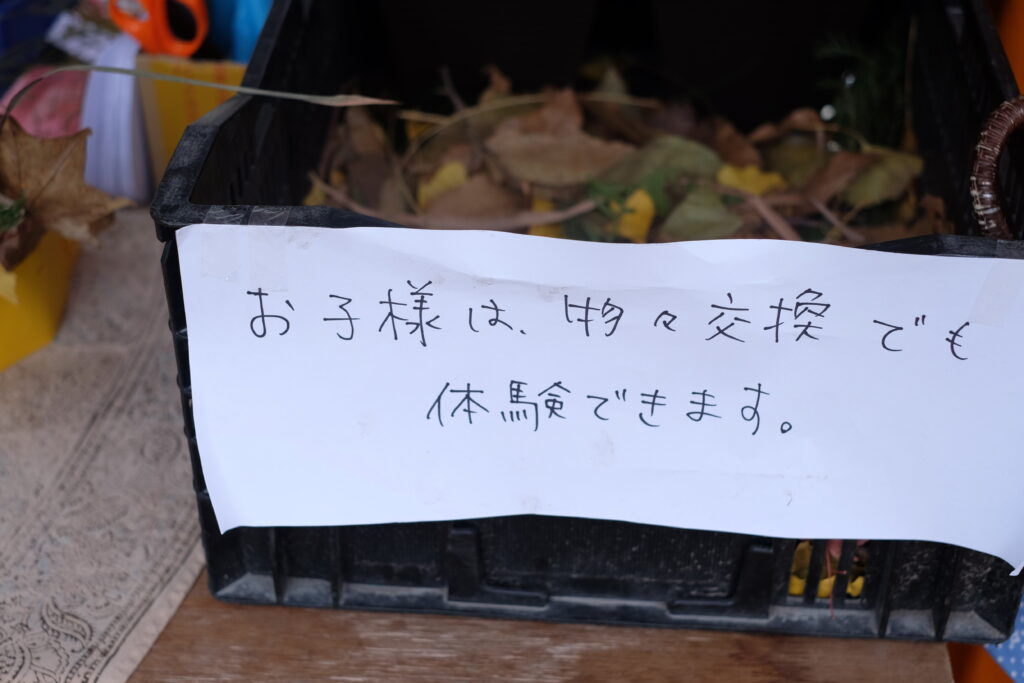 お子様は、物々交換でも
体験できます。